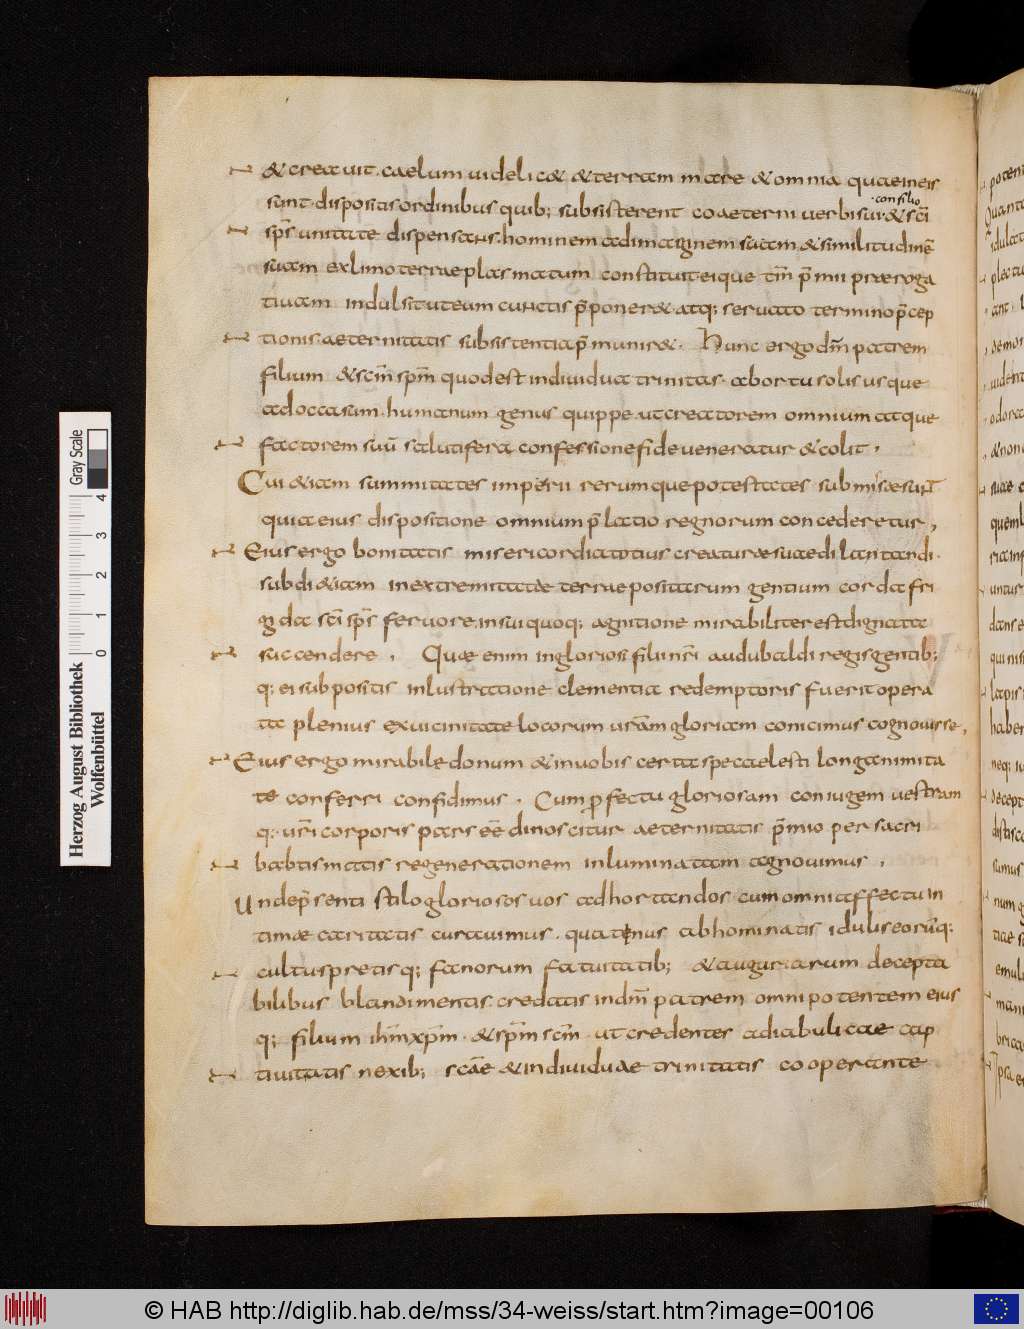 & creauit. caelum uidelic& & terram mare & omnia quae in eis
consilio
sunt. dispositis ordinibus quib; subsisterent coaeterni uerbi sui. & sc̄i
sp̄s unitate dispensans. hominem ad imaginem suam & similitudinē
suam ex limo terrae plasmatum constituit eique tm̄ p̄mii praeroga
tiuam indulsit ut eum cunctis p̄poner& atq; seruato termino p̄cep
tionis. aeternitatis subsistentia p̄munir&. Hunc ergo dm̄ patrem
filium & scm̄ spm̄ quod est indiuidua trinitas. ab ortu solis usque
ad occasum. humanum genus quippe ut creatorem omnium atque
factorem suū salutifera confessione fide ueneratur & colit.
Cui &iam summitates imperii rerumque potestates submissae sunt
quia eius dispositione omnium p̄latio regnorum concederetur,
Eius ergo bonitatis misericordia totius creaturae suae dilatandi.
subdi &iam in extremitatae terrae positarum gentium corda fri
gida sc̄i sp̄s feruore. in sui quoq; agnitione mirabiliter est dignata
succendere. Quae enim in gloriosi filii nr̄i audubaldi regis gentib;
q; ei subpositis inlustratione clementia redemptoris fuerit opera
ta plenius ex uicinitate locorum ur̄am gloriam conicimus cognouisse,
Eius ergo mirabile donum & in uobis certa spe caelesti longanimita
te conferri confidimus. Cum profectu gloriosam coniugem uestram
q; ur̄i corporis pars eē dinoscitur aeternitatis p̄mio per sacri
babtismatis regenerationem inluminatam agnouimus.
Unde p̄senti stilo gloriosos uos adhortandos cum omni affectu in
timae caritatis curauimus. quatenus abhominatis idulis eorumq;
cultu spretisq; fanorum fatuitatib; & auguriarum decepta
bilibus blandimentis. credatis in dm̄ patrem omnipotentem eius
q; filium ihm̄ xpm̄. & spm̄ scm̄. ut credentes a diabulicae cap
tiuitatis nexib; scāe & indiuiduae trinitatis cooperante
Herzog August Bibliothek
Wolfenbüttel
Gray Scale
0 1 2 3 4
© HAB http://diglib.hab.de/mss/34-weiss/start.htm?image=00106